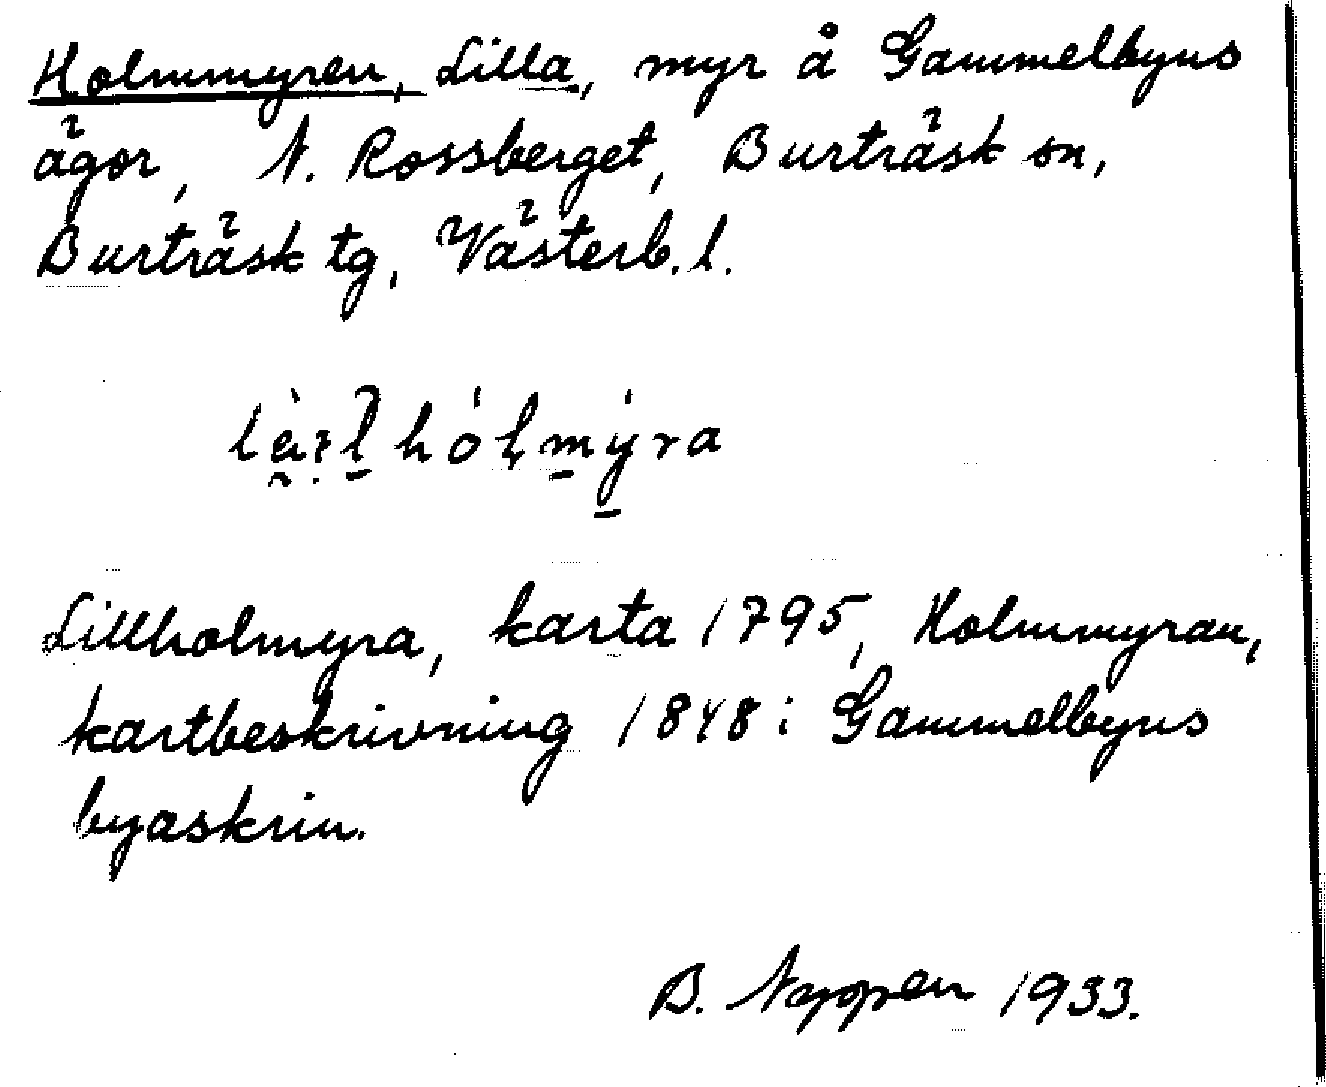 Holmmyren, Lilla, myr å Gammelbyns
ägor, N. Rossberget, Burträsk sn,
Burträsk tg, Västerb. l.
Lillholmyra, karta 1795, Holmmyran,
kartbeskrivning 1848 i Gammelbyns
byaskrin.
B. Nappen 1933.